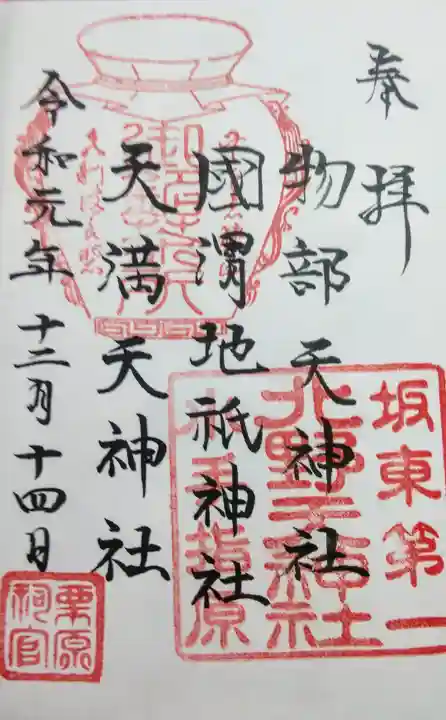 奉拝
物部天神社
國渭地祇神社
天満天神社
令和元年十二月十四日
坂東第一
北野天神社
栗原祠官